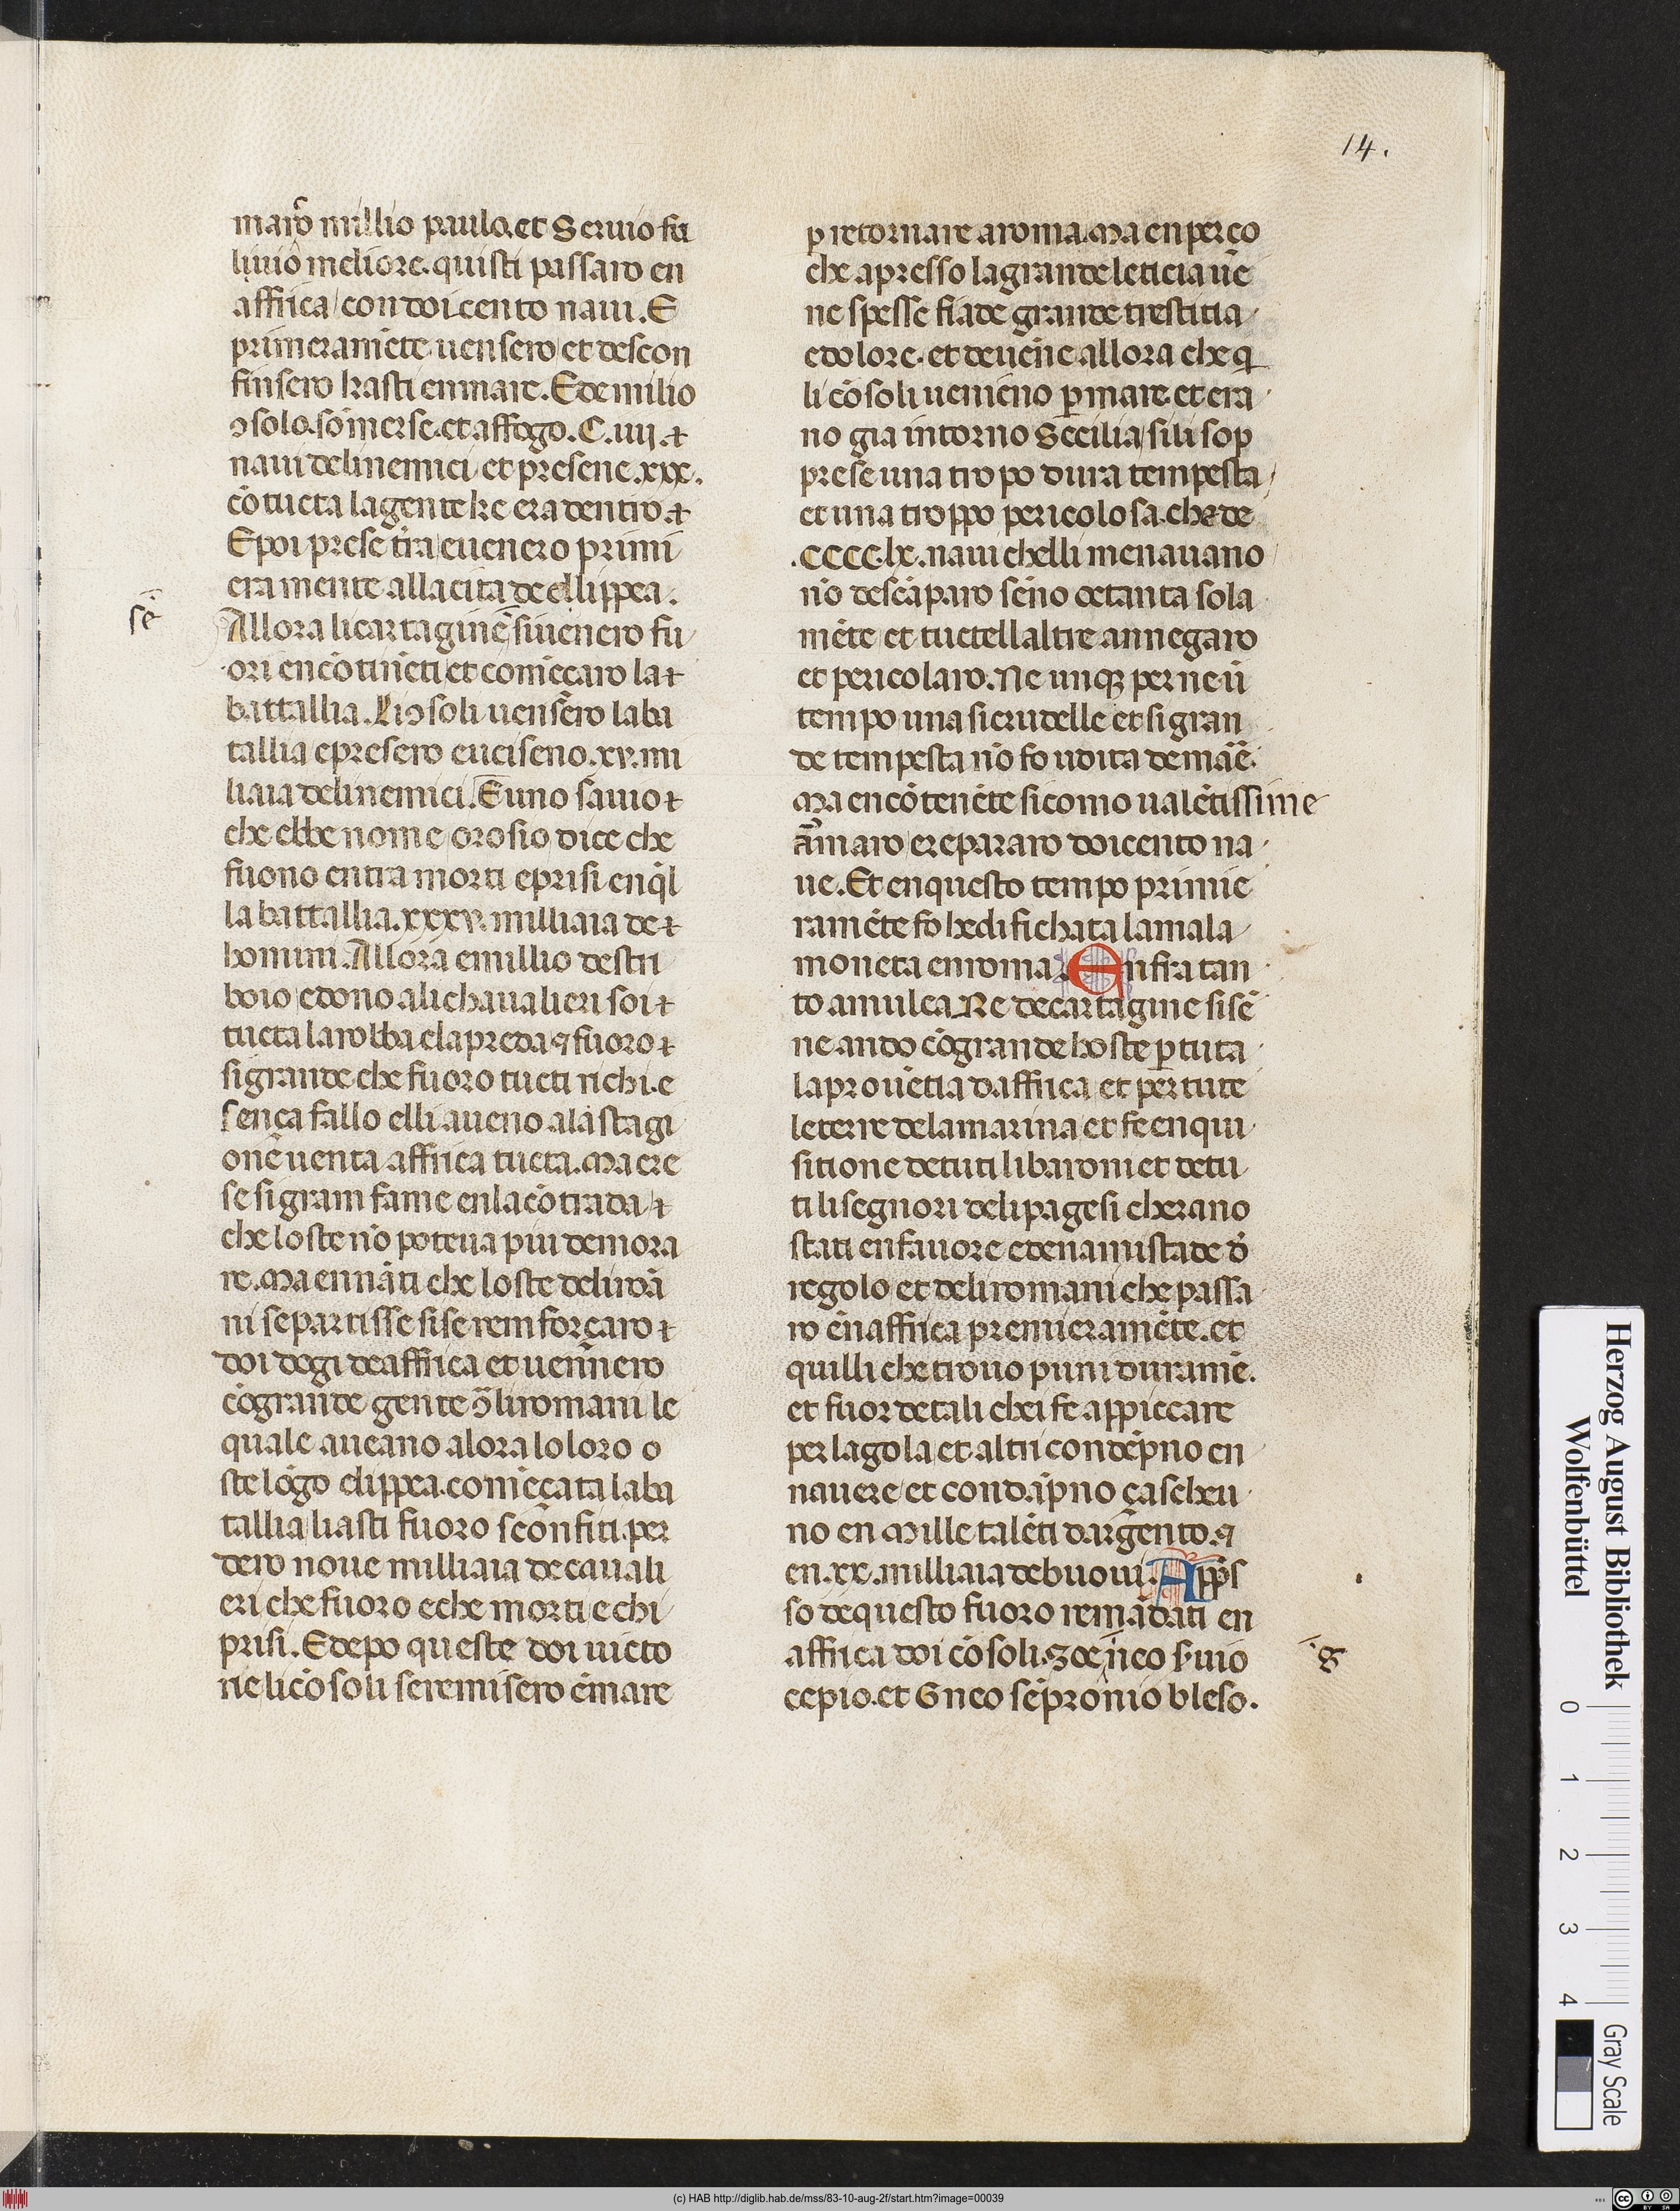 14.
maro millio paulo. et Seruio fu
liuio meliore. quisti passaro en
affrica con doi cento naui. E
primeramēte uensero et descon
finsero kasti en mare. E de milio
ɔsolo. sōmerse. et affogo. C. iiij. ⁊
naui deli nemici et presene. xxx.
cō tucta la gente ke era dentro. ⁊
E poi prese tr̄a e uenero primi
eramente alla cita de ellippea.
sē
Allora li cartaginēsi uenero fu
ori encōtinēti et comēçaro la ⁊
battallia. Li ɔsoli uensero la ba
tallia e presero e uciseno. xv. mi
liaia deli nemici. E uno sauio ⁊
che ebbe nome orosio dice che
fuono entra morti e prisi en q̄l
la battallia. xxxv. milliaia de ⁊
homini. Allora emillio destri
boio e dono ali chaualieri soi ⁊
tucta la robba e la preda ꝯ fuoro ⁊
si grande che fuoro tucti richi. e
sença fallo elli aueno ala stagi
one uenta affrica tucta. Ma ere
se si gram fame en la cōtrada ⁊
che loste nō poteua piu demora
re. Ma ennāti che loste deli romā
ni se partisse si se remforçaro ⁊
doi dogi de affrica et uennero
cō grande gente ɔ̄ li romani le
quale aueano alora lo loro o
ste lōgo clippea. comēçata la ba
tallia li asti fuoro scōnfiti. per
dero noue milliaia de cauali
eri che fuoro e che morti e chi
prisi. E depo queste doi uicto
rie li cōsoli se remisero ē mare
p retornare a roma. Ma en perço
che apresso la grande leticia uē
ne spesse fiade grande trestitia
e dolore. et deuēne allora che q̄
li cōsoli uenieno ꝑ mare. et era
no gia intorno Secilia si li sop
prese una tropo dura tempesta
et una troppo pericolosa. che de
.CCCC. lx. naui chelli menauano
nō descāparo sēno octanta sola
mēte et tuctellaltre annegaro
et pericolaro. Ne unqꝫ per neū
tempo una si crudelle et si gran
de tempesta nō fo udita de māe.
Ma encōtenēte sicomo ualētissime
āmaro e repararo doicento na
ue. Et en questo tempo primie
ramēte fo hedifichata la mala
moneta en roma. Enfra tan
to amulca Re de cartagine si sē
ne ando cō grande hoste ꝑ tuta
la prouētia daffrica et per tute
le terre dela marina et fe enqui
sitione de tuti li baroni et de tu
ti li segnori deli pagesi cherano
stati en fauore e den amistade d̄
regolo et deli romani che passa
ro en affrica premieramēte. et
quilli che trouo puni duramē.
et fuor de tali chei fe appiccare
per la gola et altri condēpno en
nauere et condāpno çascheu
no en Mille talēti dargento. ꝯ
en. xx. milliaia de buoui. Appͣs
so de questo fuoro remādati en
affrica doi cōsoli. ꝫoe ineo s̄uio
.g
cepio. et Gneo sēpronio bleso.
Herzog August Bibliothek
Wolfenbüttel
0 1 2 3 4
Gray Scale
(c) HAB http://diglib.hab.de/mss/83-10-aug-2f/start.htm?image=00039